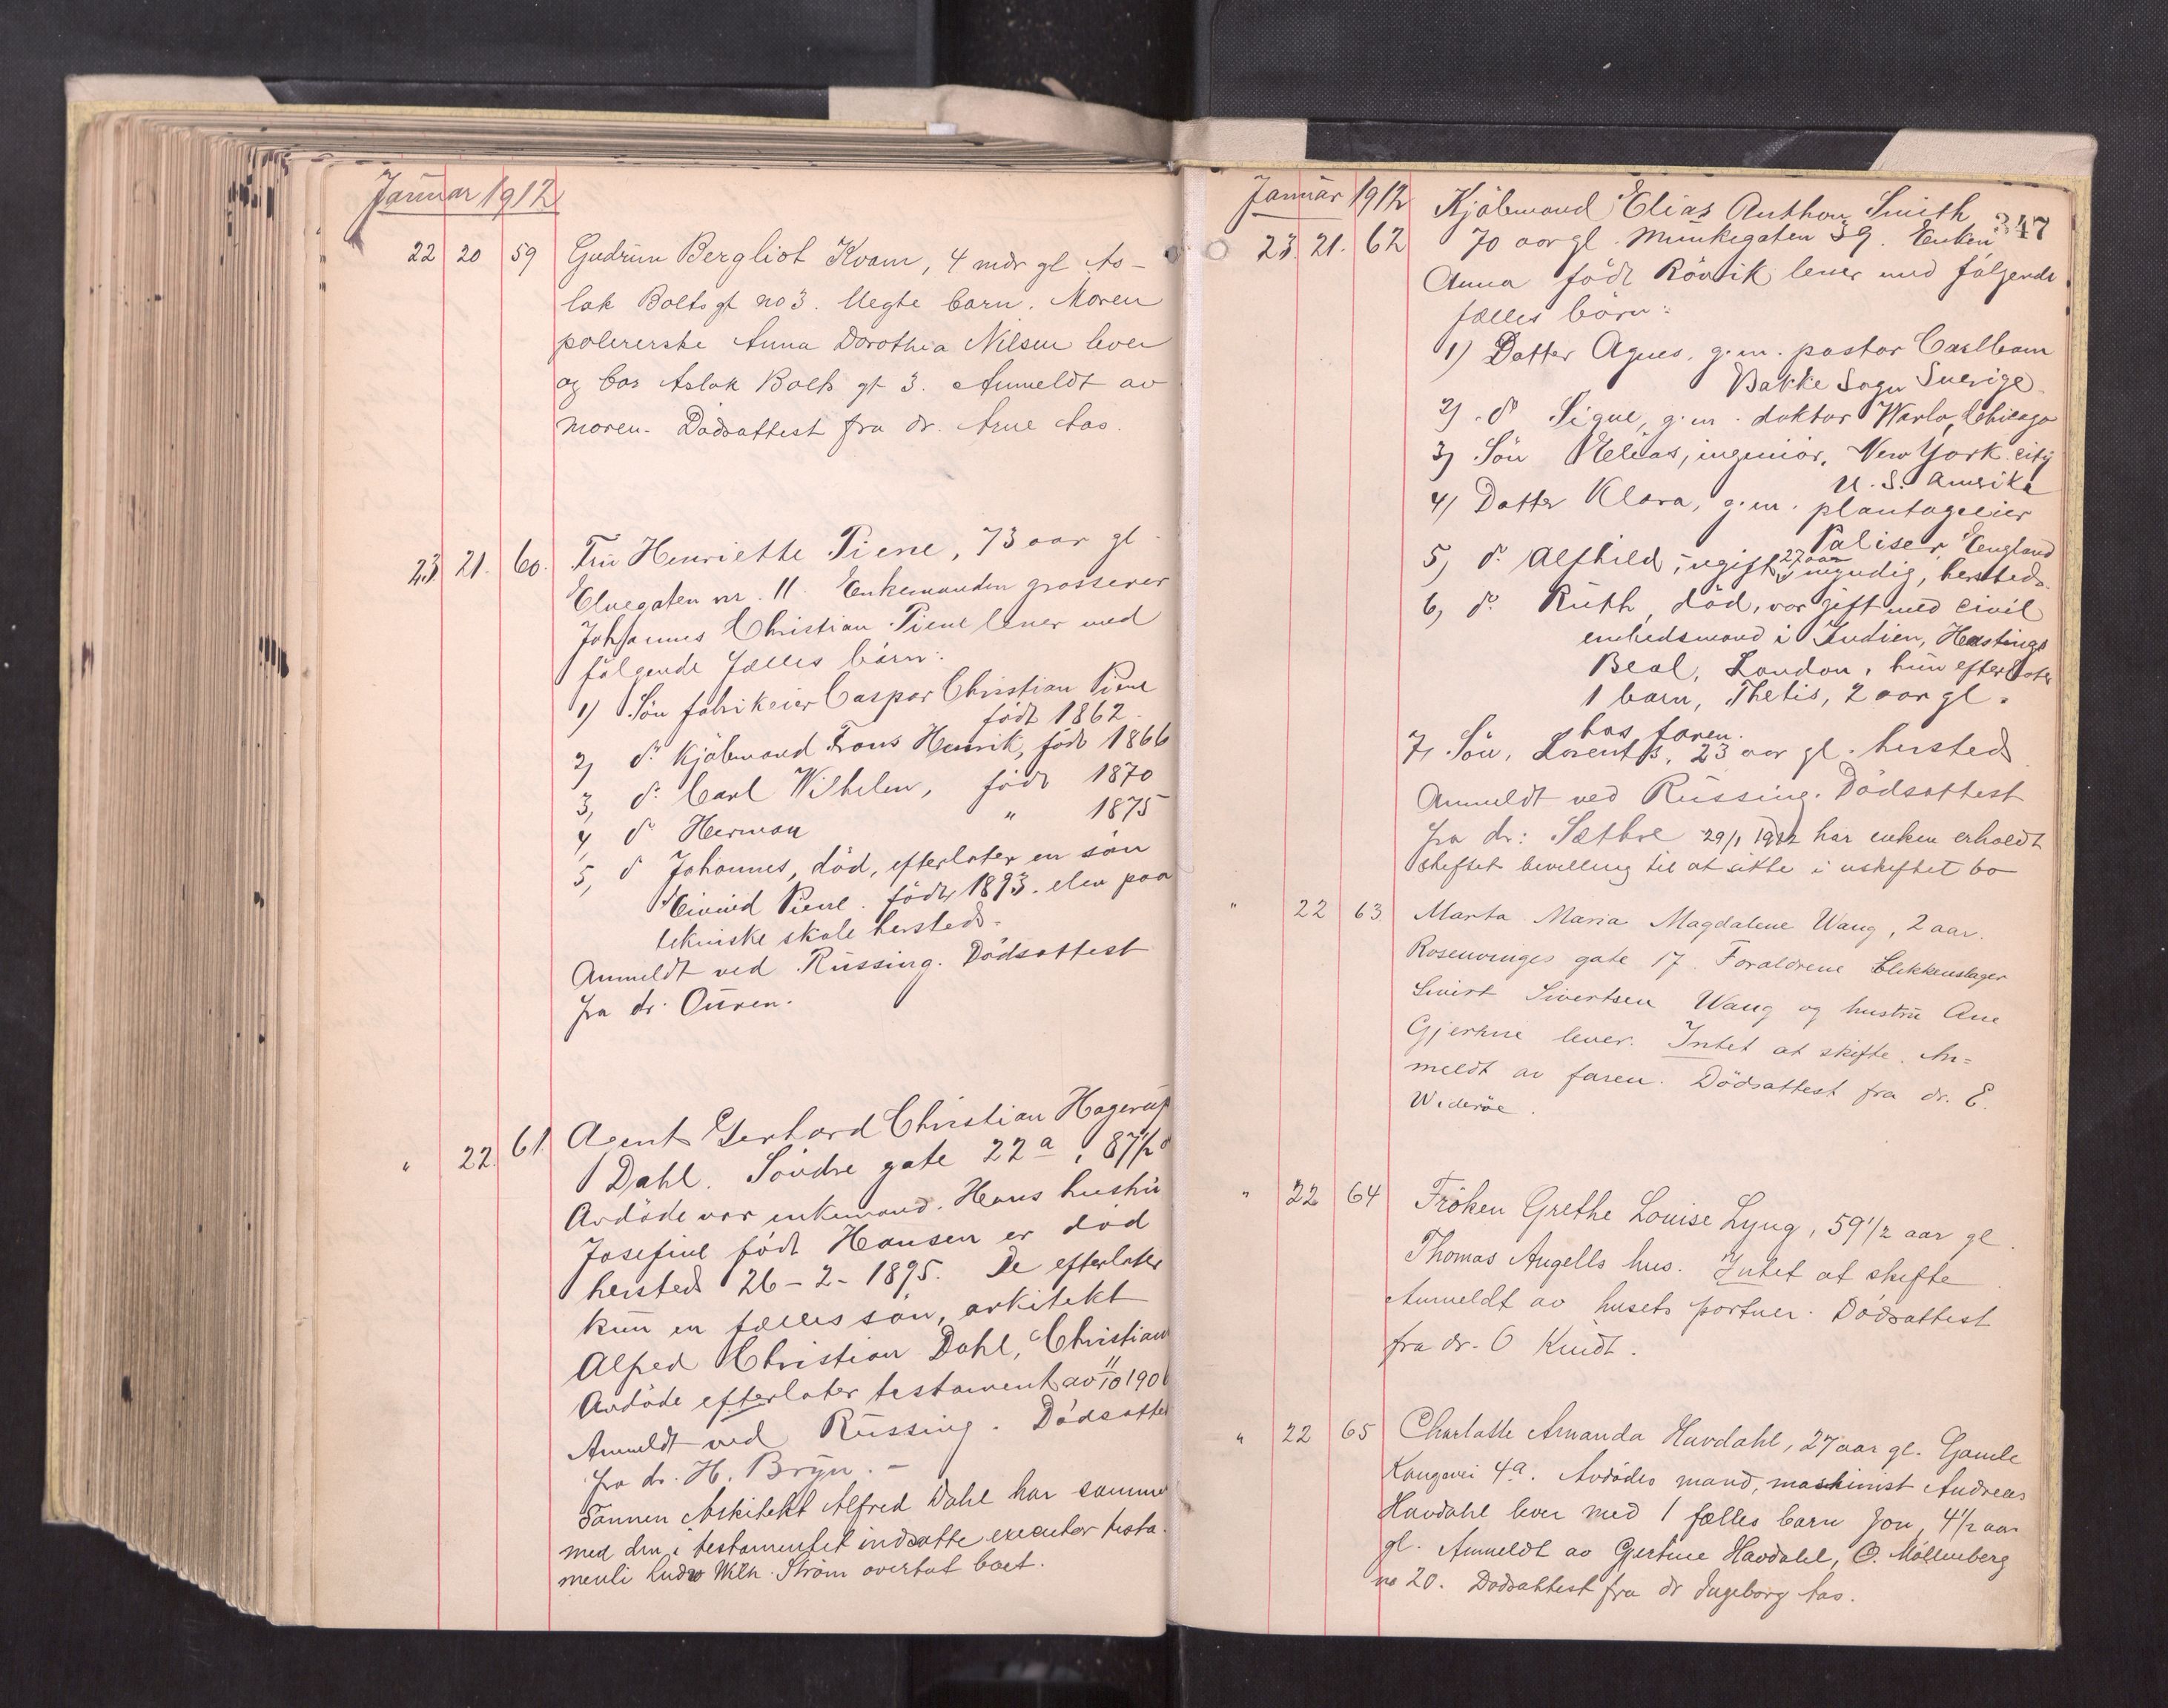 Januar 1912
22 20 59 Gudrun Bergliot Kvam, 4 mdr gl As-
lak Bolts gt no 3. Uegte barn. Moren
polererske Anna Dorothea Nilsen lever
og bor Aslak Bolts gt 3. Anmeldt av
moren. Dødsattest fra dr. Arne Aas.
23 21. 60. Fru Henriette Piene, 73 aar gl.
Elvegaten nr. 11. Enkemanden grosserer
Johannes Christian Piene lever med
følgende fælles børn:
1) Søn fabrikeier Caspar Christian Piene
født 1862.
2) do Kjøbmand Frans Henrik, født 1866
3, do Carl Wilhelm, født 1870
4, do Herman " 1875
5, do Johannes, død, efterlater en søn
Eivind Piene. født 1893. elev paa
tekniske skole hersteds.
Anmeldt ved Rüssing. Dødsattest
fra dr. Ouren.
" 22. 61 Agent Gerhard Christian Hagerup
Dahl. Søndre gate 22 a, 87 1/2
Avdøde var enkemand. Hans hustru
Josefine født Hansen er død
hersteds 26-2-1895. De efterlater
kun en fælles søn, arkitekt
Alfred Christian Dahl, Christian
Avdøde efterlater testament av 11/10 190
Anmeldt ved Rüssing. Dødsattest
fra dr. H. Bryn. -
Sønnen Arkitekt Alfred Dahl har samme
med den i testamentet indsatte executor testa-
menti Ludv Wilh. Strøm overtat boet.
Januar 1912
347
23. 21. 62 Kjøbmand Elias Anthon Smith
70 aar gl. Munkegaten 39. Enken
Anna født Rövik lever med følgende
fælles børn:
1) Datter Agnes, g.m. pastor Carlbom
Bakke Sogn Sverige
2) do Signe, g.m. doktor Warlo, Chicago
3) Søn Elias, ingeniør, New York city
U. S. Amerika
4) Datter Klara, g.m. plantageeier
Paliser, England
5) do Alfhild, ugift, 27 aar myndig, hersteds.
6, do Ruth, død, var gift med civil
embedsmand i Indien, Hastings
Beal, London, hun efterlater
1 barn, Thetis, 2 aar gl.
hos faren.
7, Søn, Lorents, 23 aar gl. hersteds
Anmeldt ved Rüssing. Dødsattest
fra dr: Sæthre 29/1 1912 har enken erholdt
skiftet bevilling til at sitte i uskiftet bo
" 22 63 Marta Maria Magdalene Wang, 2 aar.
Rosenvinges gate 17. Forældrene blikkenslager
Sivert Sivertsen Wang og hustru Ane
Gjertine lever. Intet at skifte. An-
meldt av faren. Dødsattest fra dr. E.
Widerøe.
" 22 64 Frøken Grethe Louise Lyng, 59 1/2 aar gl.
Thomas Angells hus. Intet at skifte.
Anmeldt av husets portner. Dødsattest
fra dr. O Kindt.
" 22 65 Charlotte Amanda Havdahl, 27 aar gl. Gamle
Kongevei 4 a. Avdødes mand, maskinist Andreas
Havdahl lever med 1 fælles barn Jon, 4 1/2 aar
gl. Anmeldt av Gjertine Havdahl, Ø. Møllenberg
no 20. Dødsattest fra dr Ingeborg Aas.